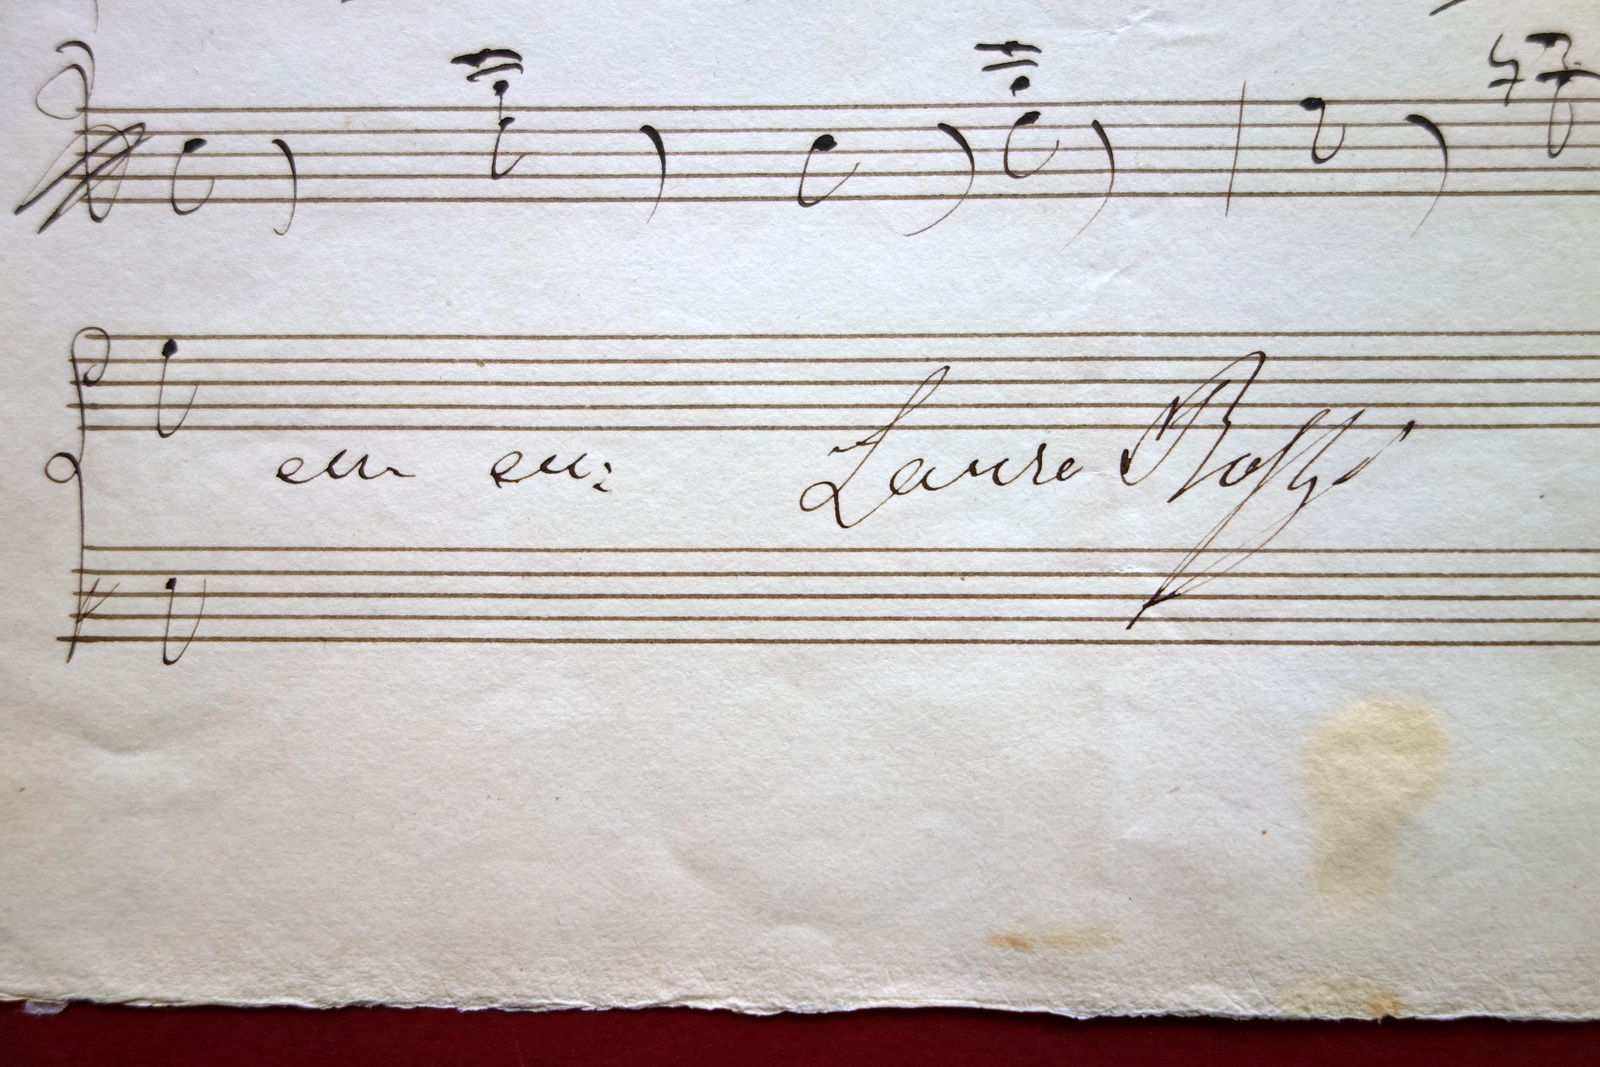 en en: Lauro Rossi